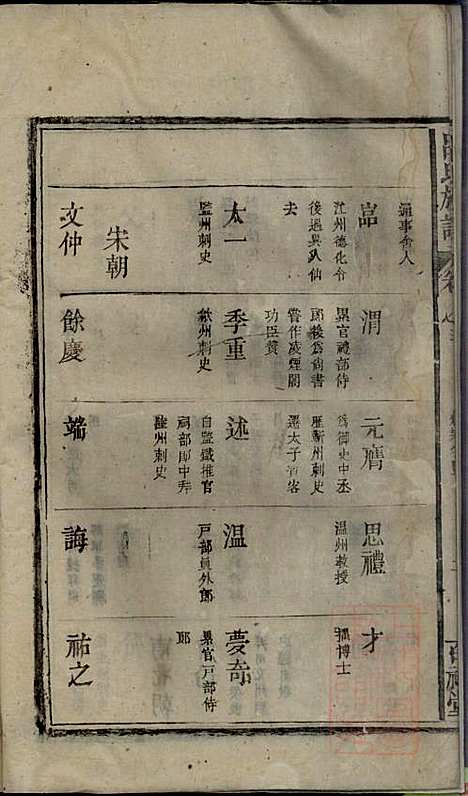 通事舍人
嵓
江州德化令
後過異人仙
去
太一
監州刺史
宋朝
文仲
渭
累官禮部侍
郎後為尚書
嘗作凌煙閣
功臣贊
季重
刺史
餘慶
元膺
為御史中丞
歷蘄州刺史
遷太子賓客
述
自鹽鐵推官
祠部郎中
州刺史
端
思禮
溫州教授
溫
戶部員外郎
誨
才
博士
夢奇
累官戶部侍
郎
祐之
呂氏族譜
卷